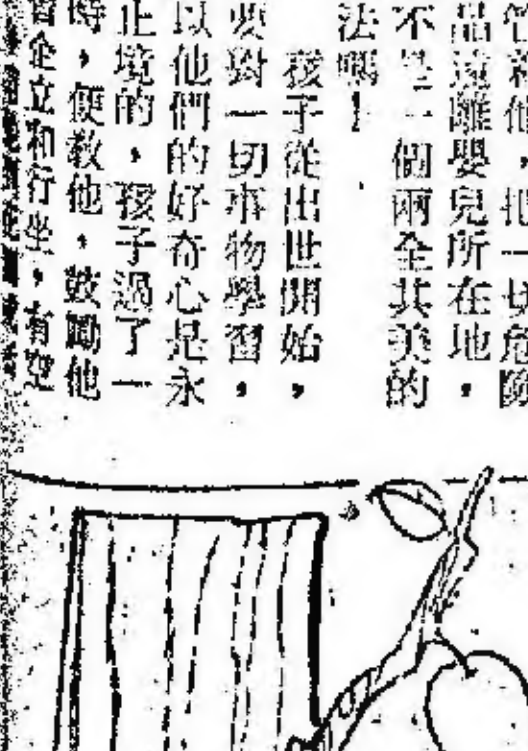 管新他，把一切危險
品遠離嬰兒所在地，
不是一個兩全其美的
法嗎！
孩子從出世開始，
要對一切事物學習，
以他們的好奇心是永
止境的，孩子過了一
時，便教他，鼓勵他
企立和行坐，有空